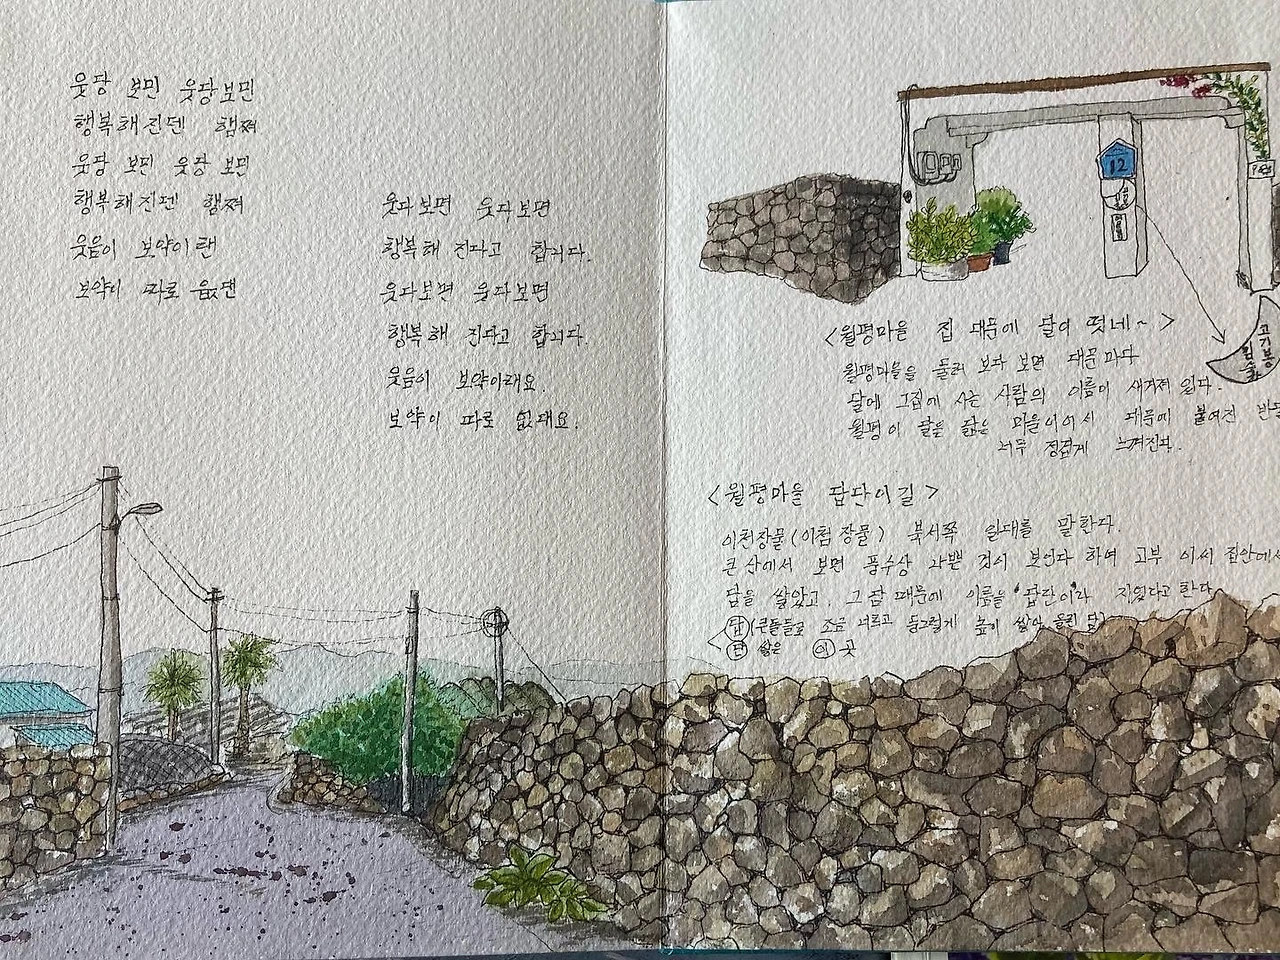 웃당 보민 웃당보민
행복해진덴 햄쪄
웃당 보민 웃당 보민
행복해진덴 햄쪄
웃음이 보약이랜
보약이 따로 읎댄
웃다보면 웃다보면
행복해 진다고 합니다.
웃다보면 웃다보면
행복해 진다고 합니다.
웃음이 보약이래요.
보약이 따로 없대요.
12
고기봉
<월평마을 집 대문에 달이 떳네~>
월평마을을 둘러 보다 보면 대문마다
달에 그집에 사는 사람의 이름이 새겨져 있다.
월평이 달을 닮은 마을이어서 대문에 붙여진 반달
너무 정겹게 느껴진다.
<월평마을 답단이길>
이천장물(이첨장물) 북서쪽 일대를 말한다.
큰 산에서 보면 풍수상 나쁜 것이 보인다 하여 고부 이씨 집안에서
답을 쌓았고, 그 답 때문에 이름을 '답단이'라 지었다고 한다.
답(큰돌들로 조금 너르고 둥그렇게 높이 쌓아 올린 답)
단 쌓은 이 곳